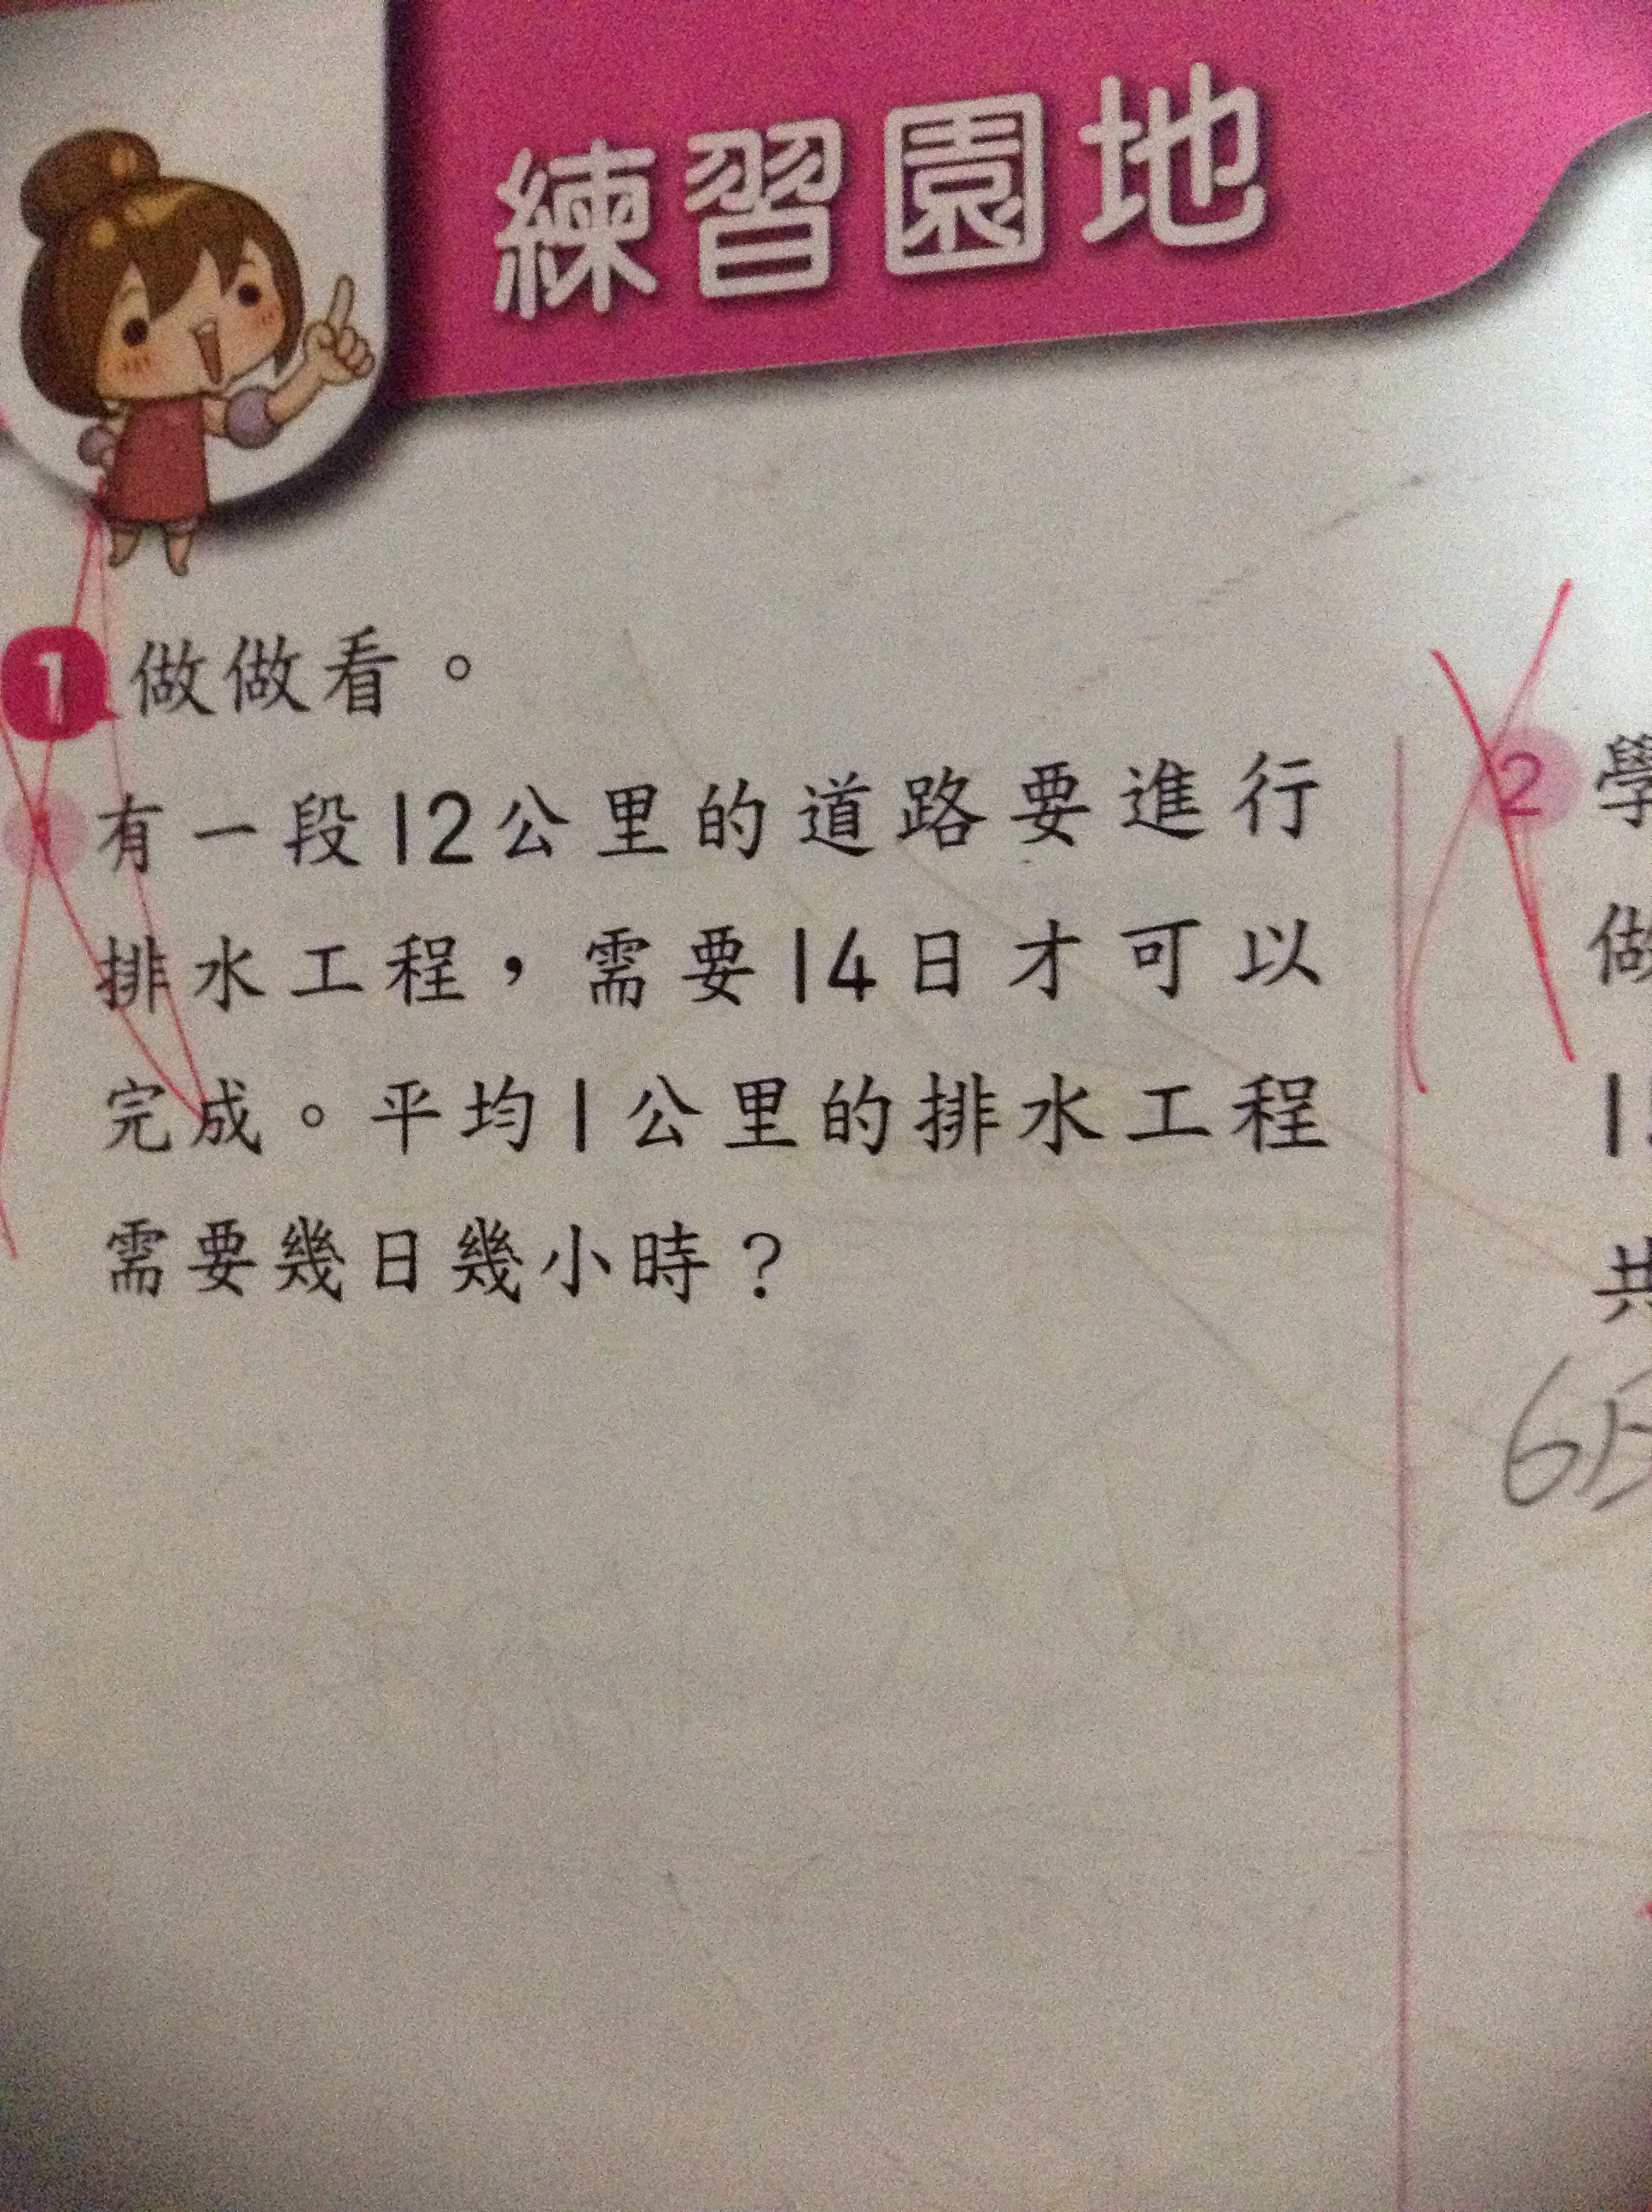 練習園地
1 做做看。
1 有一段12公里的道路要進行
排水工程，需要14日才可以
完成。平均1公里的排水工程
需要幾日幾小時？
2 學
做
共
6